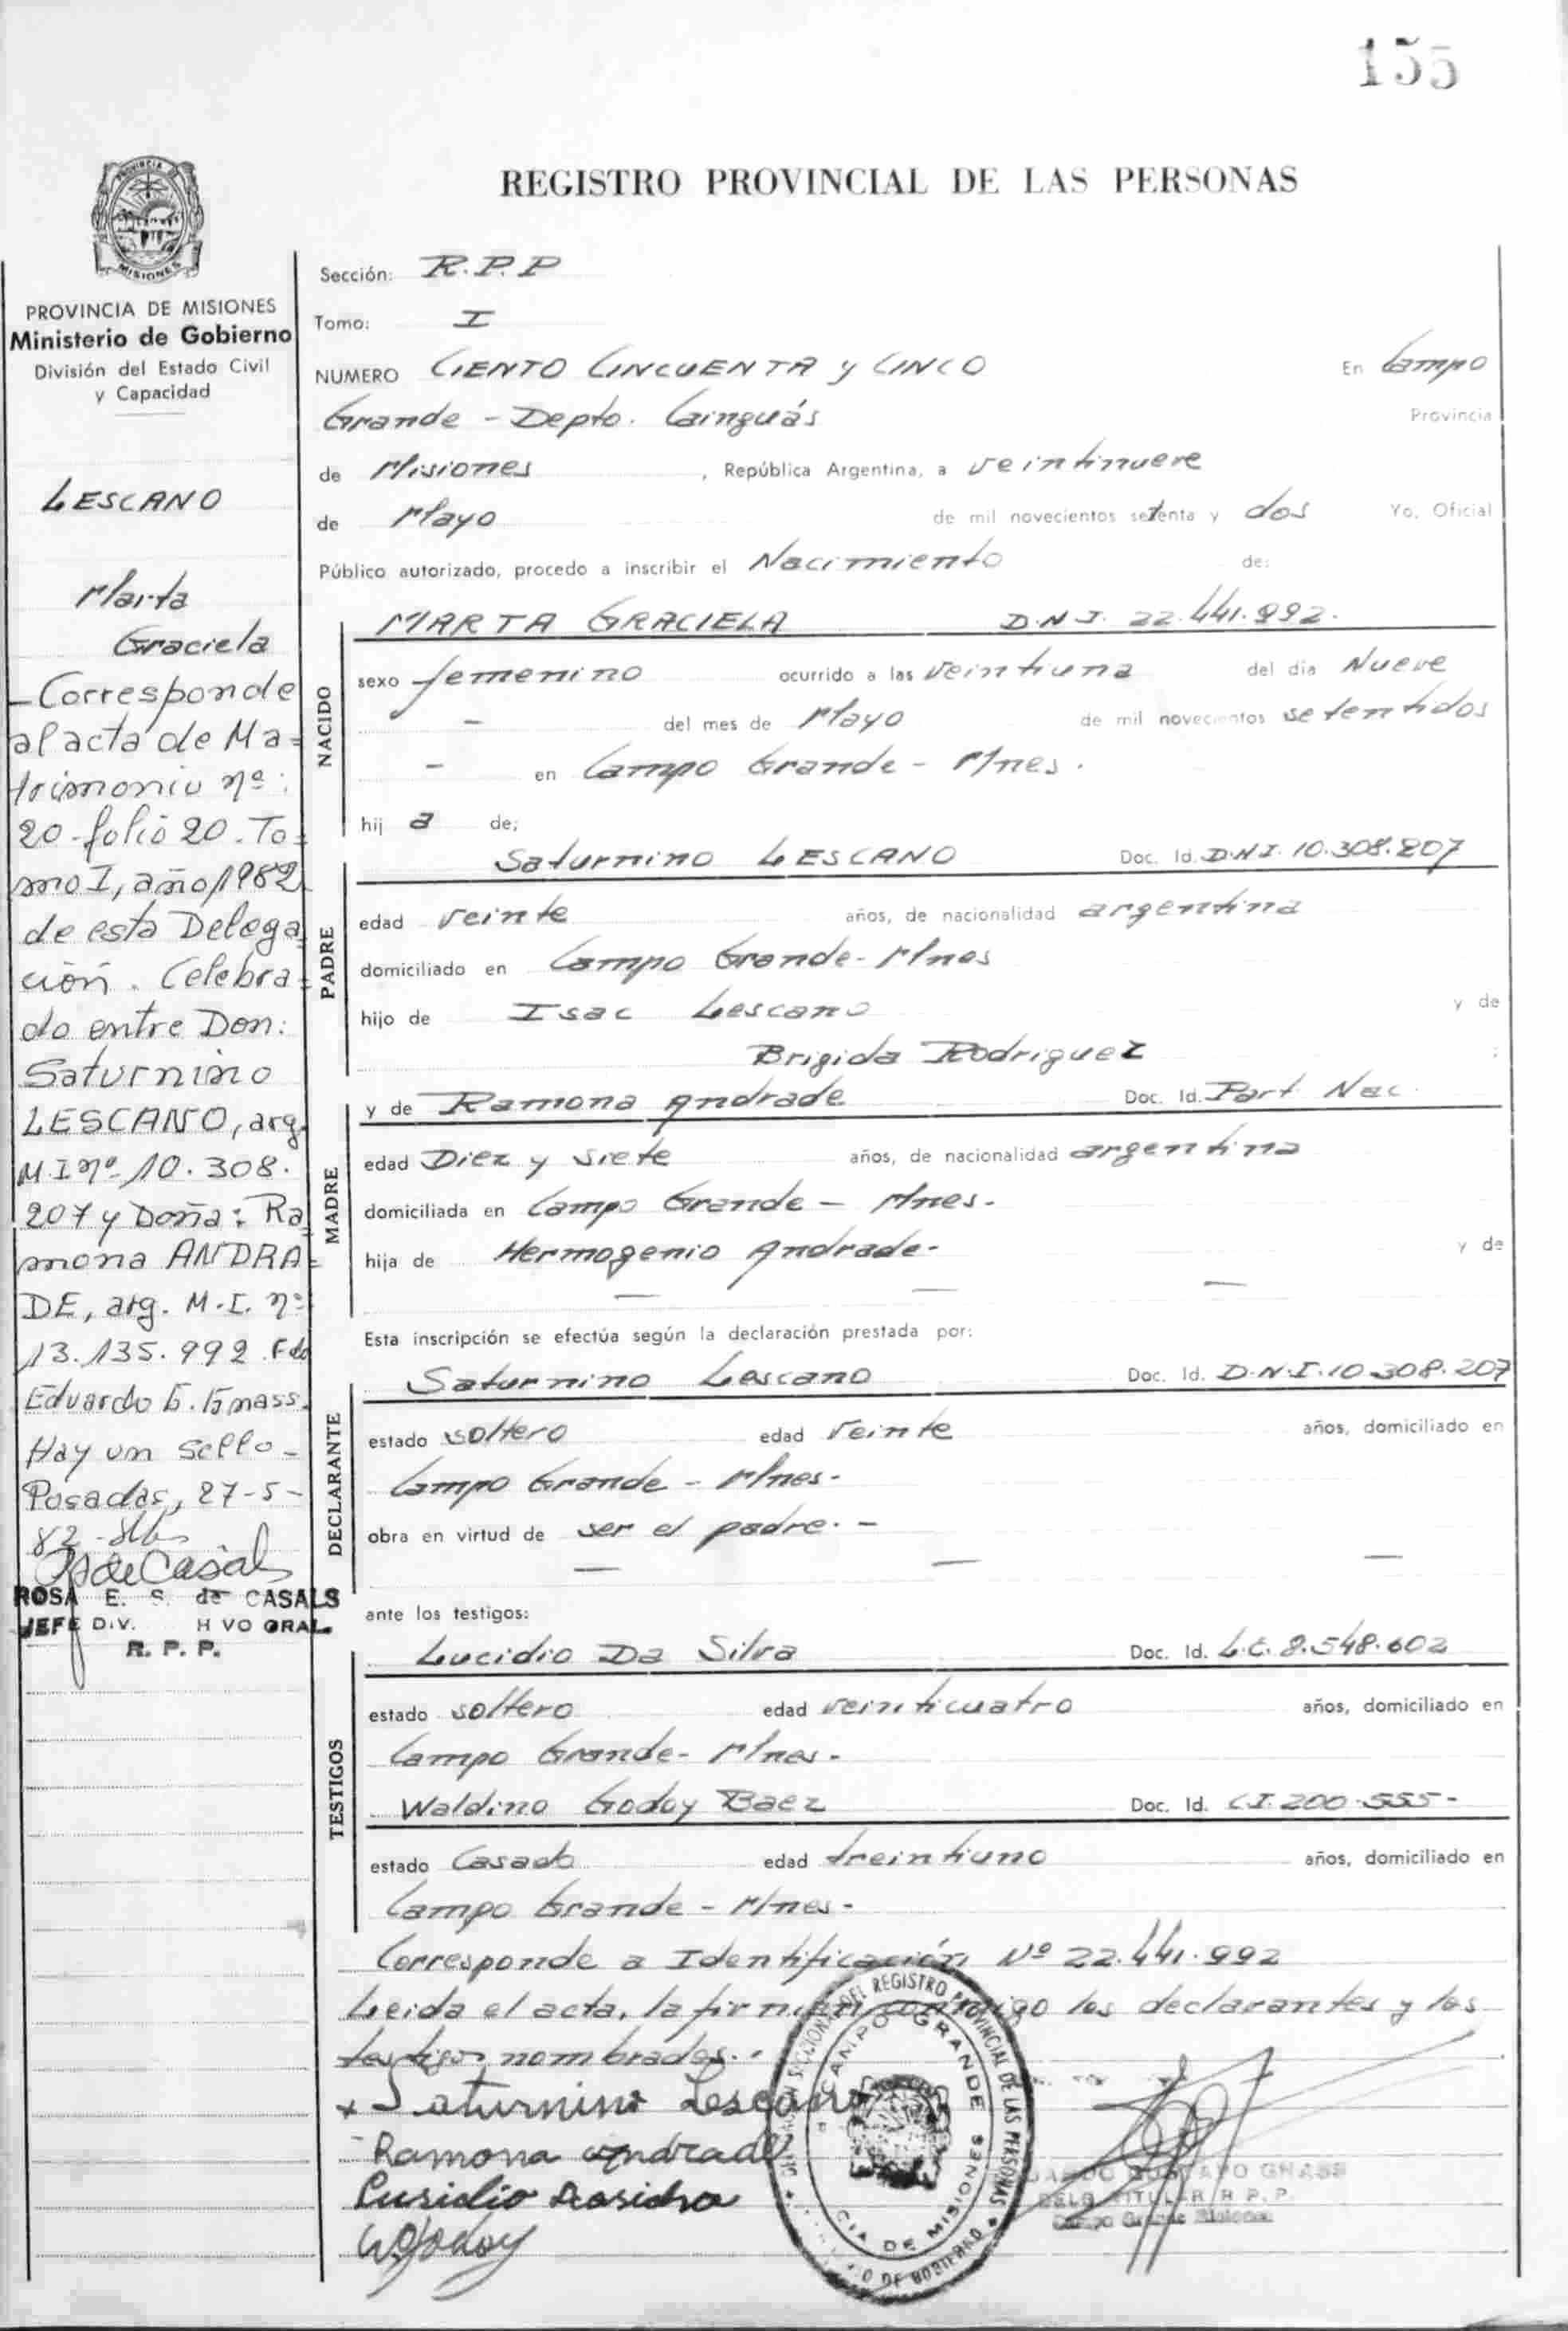 155
PROVINCIA DE
MISIONES
PROVINCIA DE MISIONES
Ministerio de Gobierno
División del Estado Civil
y Capacidad
LESCANO
Marta
Graciela
- Corresponde
al acta de Ma=
trimonio nº:
20-folio 20. To=
mo I, año 1982
de esta Delega
ción. Celebra=
do entre Don:
Saturnino
LESCANO, arg.
M.I nº 10.308.
207 y Doña: Ra
mona ANDRA=
DE, arg. M.I. nº
13.135.992. Fdo
Eduardo G.
Hay un sello-
Posadas, 27-5-
82
ROSA E. S. de CASALS
JEFE DIV. H VO GRAL.
R. P. P.
REGISTRO PROVINCIAL DE LAS PERSONAS
Sección: R.P.P
Tomo: I
NUMERO CIENTO CINCUENTA y CINCO En Campo
Grande - Depto. Cainguás Provincia
de Misiones , República Argentina, a veintinueve
de Mayo de mil novecientos setenta y dos Yo, Oficial
Público autorizado, procedo a inscribir el Nacimiento de:
NACIDO
MARTA GRACIELA D.N.I. 22.441.992.
sexo femenino ocurrido a las veintiuna del día Nueve
- del mes de Mayo de mil novecientos setentidos
- en Campo Grande - Mnes.
hij a de;
PADRE
Saturnino LESCANO Doc. Id. D.N.I. 10.308.207
edad veinte años, de nacionalidad argentina
domiciliado en Campo Grande - Mnes
hijo de Isac Lescano y de
Brigida Rodriguez ;
MADRE
y de Ramona Andrade Doc. Id. Part Nac.
edad Diez y siete años, de nacionalidad argentina
domiciliada en Campo Grande - Mnes.
hija de Hermogenio Andrade- y de
— — —
Esta inscripción se efectúa según la declaración prestada por:
DECLARANTE
Saturnino Lescano Doc. Id. D.N.I. 10.308.207
estado soltero edad veinte años, domiciliado en
Campo Grande - Mnes-
obra en virtud de ser el padre. -
— — —
ante los testigos:
TESTIGOS
Lucidio Da Silva Doc. Id. L.E. 8.548.602
estado soltero edad veinticuatro años, domiciliado en
Campo Grande - Mnes-
Waldino Godoy Baez Doc. Id. C.I. 200.555-
estado Casado edad treintiuno años, domiciliado en
Campo Grande - Mnes-
Corresponde a Identificación Nº 22.441.992
Leida el acta, la firman conmigo los declarantes y los
testigos nombrados..
x Saturnino Lescano
Ramona Andrade
WGodoy
SECCIONAL DEL REGISTRO PROVINCIAL DE LAS PERSONAS
CAMPO GRANDE
CIA DE MISIONES
O DE GOBIERNO
GUSTAVO GNASS
DELG TITULAR R.P.P.
Campo Grande Misiones